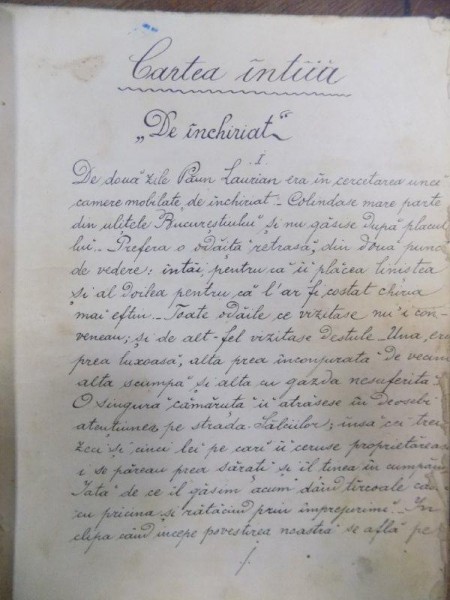 Cartea întiia
„De închiriat"
I
De două zile Păun Laurian era în cercetarea unei
camere mobilate de închiriat. Colindase mare parte
din ulițele Bucureștiului și nu găsise după placul
lui. Prefera o odăiță retrasă, din două punc
de vedere: întâi, pentru că îi plăcea liniștea
și al doilea pentru că l'ar fi costat chiria
mai eftin. Toate odăile ce vizitase nu'i con-
veneau; și de alt-fel vizitase destule. Una era
prea luxoasă, alta prea înconjurată de vecini
alta scumpă și alta cu gazda nesuferită.
O singură cămăruță îi atrăsese în deosebi
atențiunea, pe strada Salciilor; însă cei trei
zeci și cinci lei pe cari îi ceruse proprietărea
i se păreau prea sărați și îl ținea în cumpănă
Iată de ce îl găsim acum dând tîrcoale
cu pricina și rătăcind prin împrejurimi. În
clipa când începe povestirea noastră se află pe